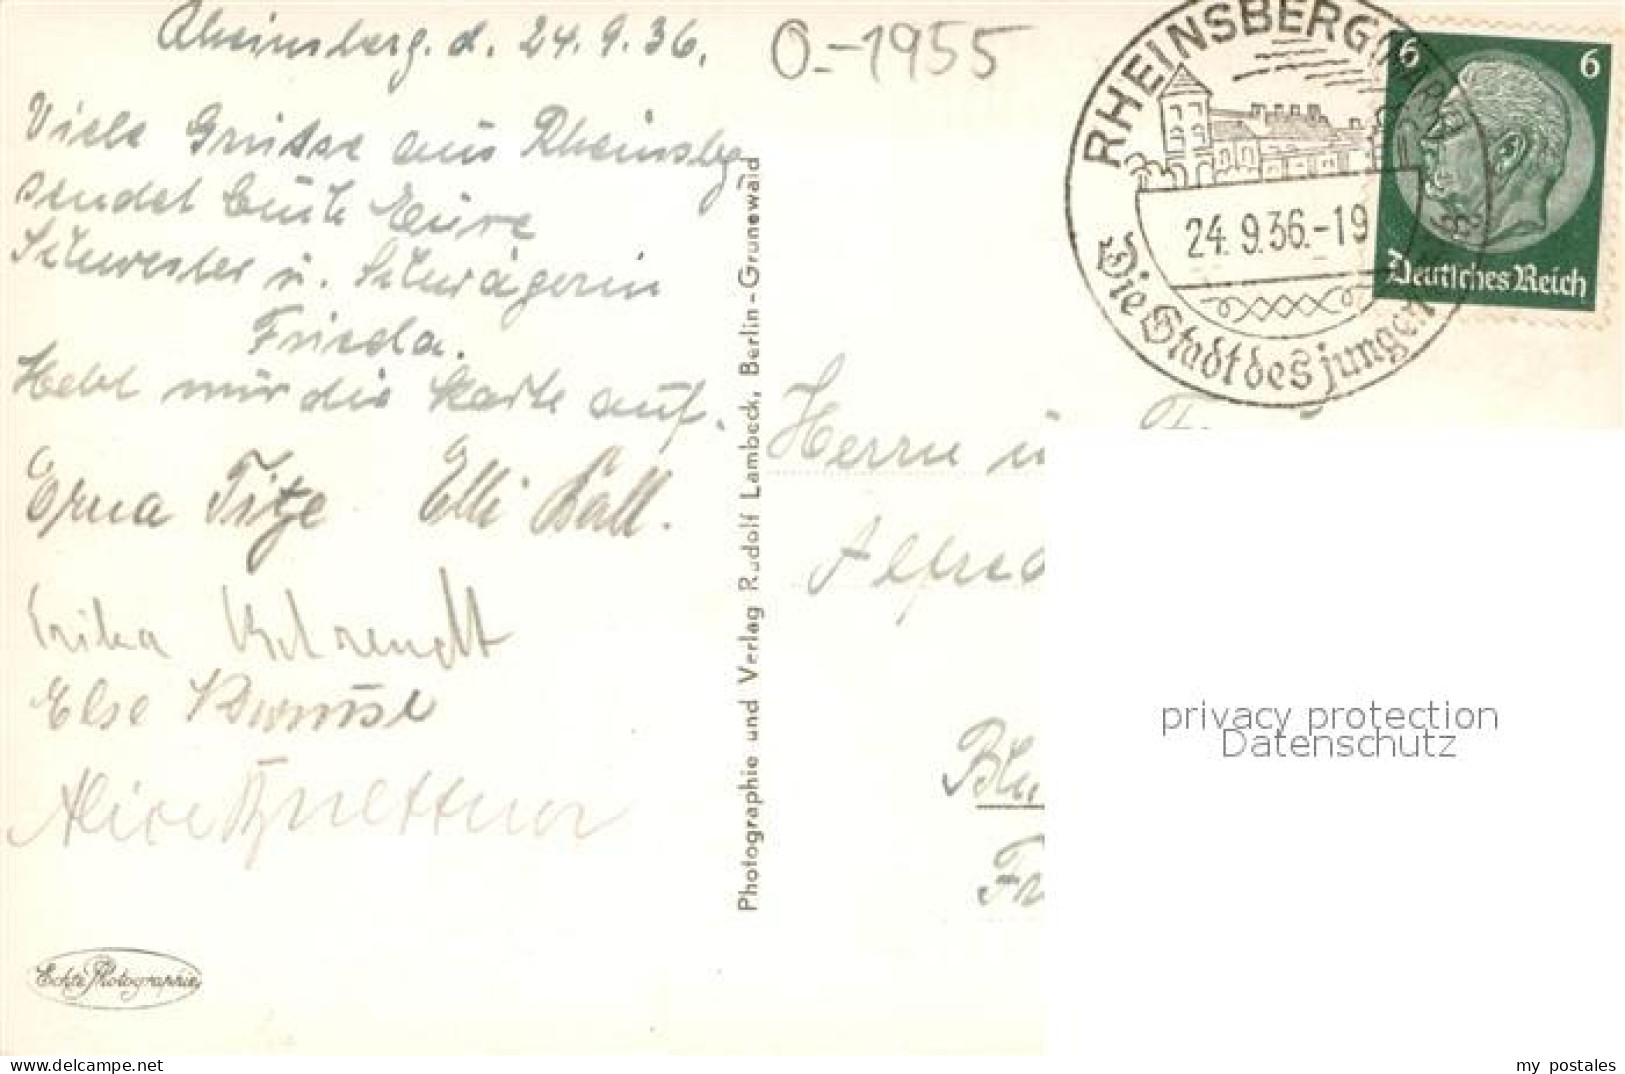 Rheinsberg. d. 24.9.36.
O-1955
Viele Grüsse aus Rheinsbg
sendet Euch Eure
Schwester u. Schwägerin
Frieda.
Hebt mir die Karte auf.
Erna Titze Elli Ball.
Erika Behrendt
Else
Alice
Echte Photographie
Photographie und Verlag Rudolf Lambeck, Berlin-Grunewald
RHEINSBERG (MARK)
24.9.36.-19
Die Stadt des jungen
6 6
Deutsches Reich
Herrn u
Alfred
Fr
privacy protection
Datenschutz
my postales